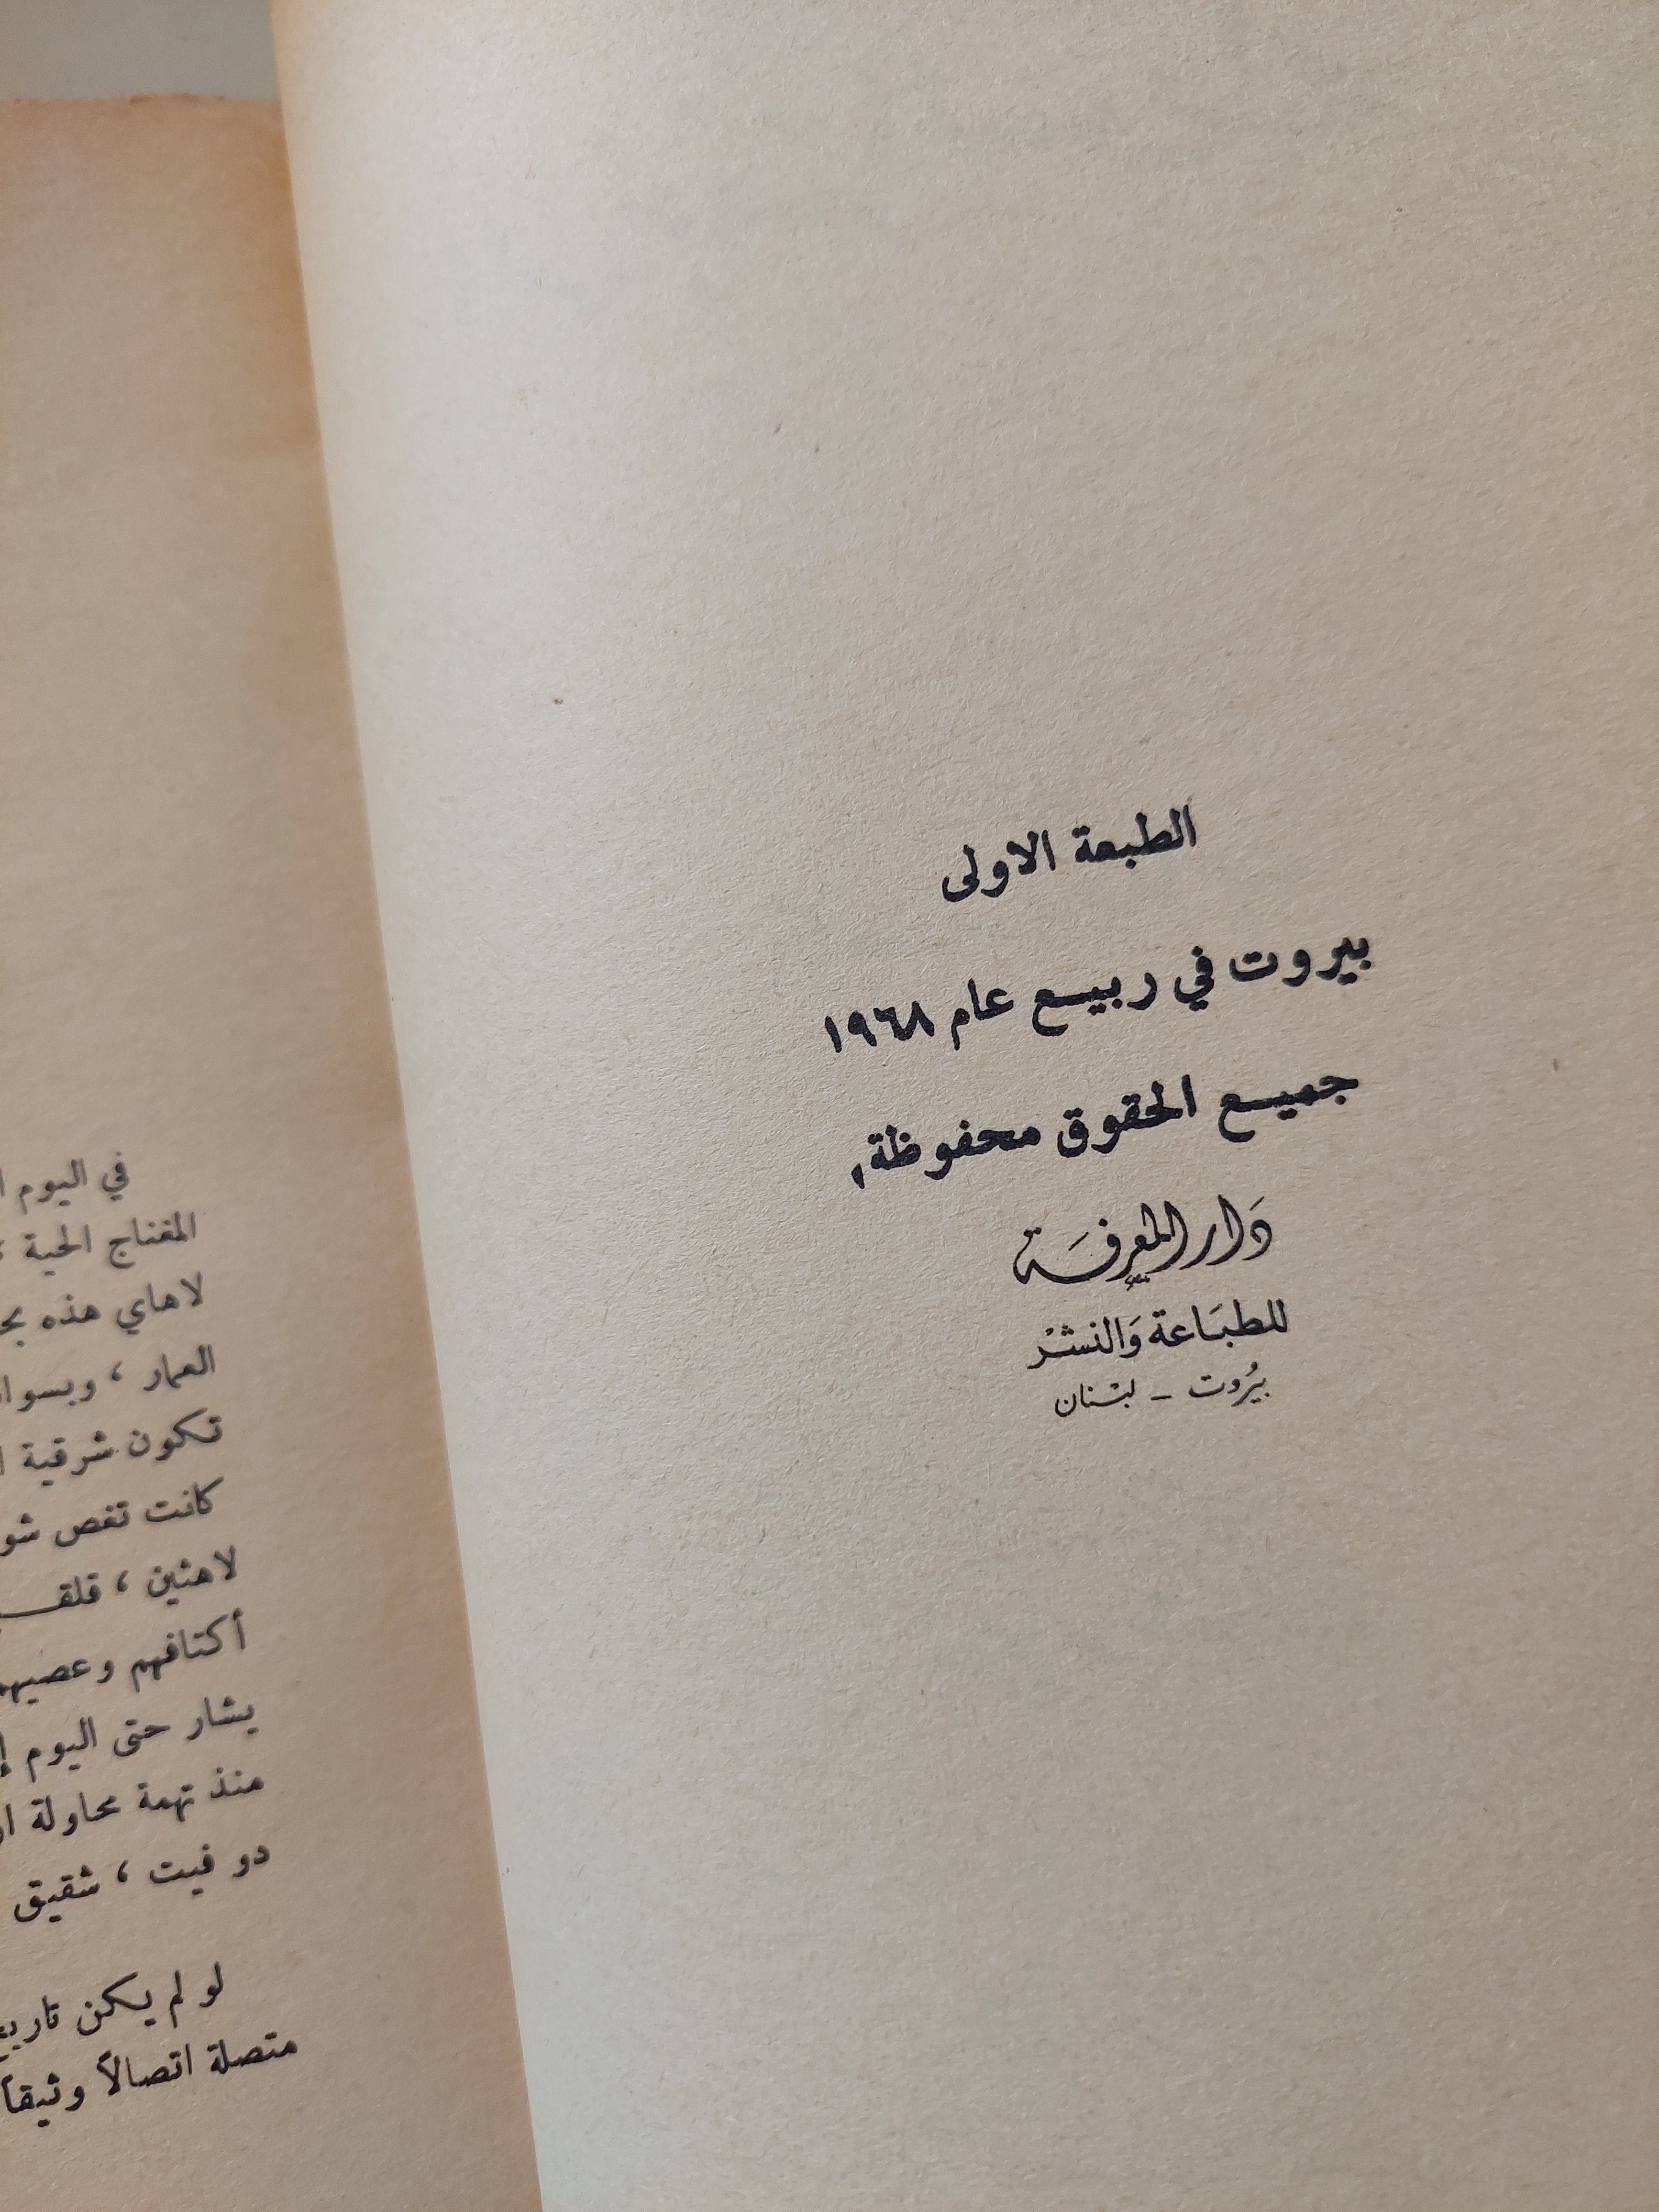 الطبعة الاولى
بيروت في ربيع عام ١٩٦٨
جميع الحقوق محفوظة,
دَار المعرفَة
للطبَاعة وَالنشْر
بَيْروت - لبْنان
في اليوم
المغناج الحية
لاهاي هذه
العمار ، وبسوا
تكون شرقية
كانت تغص شو
لاهثين ، قلقـ
أكتافهم وعصيهم
يشار حتى اليوم
منذ تهمة محاولة
دو فيت ، شقيق
لو لم يكن تاريخ
متصلة اتصالاً وثيقاً